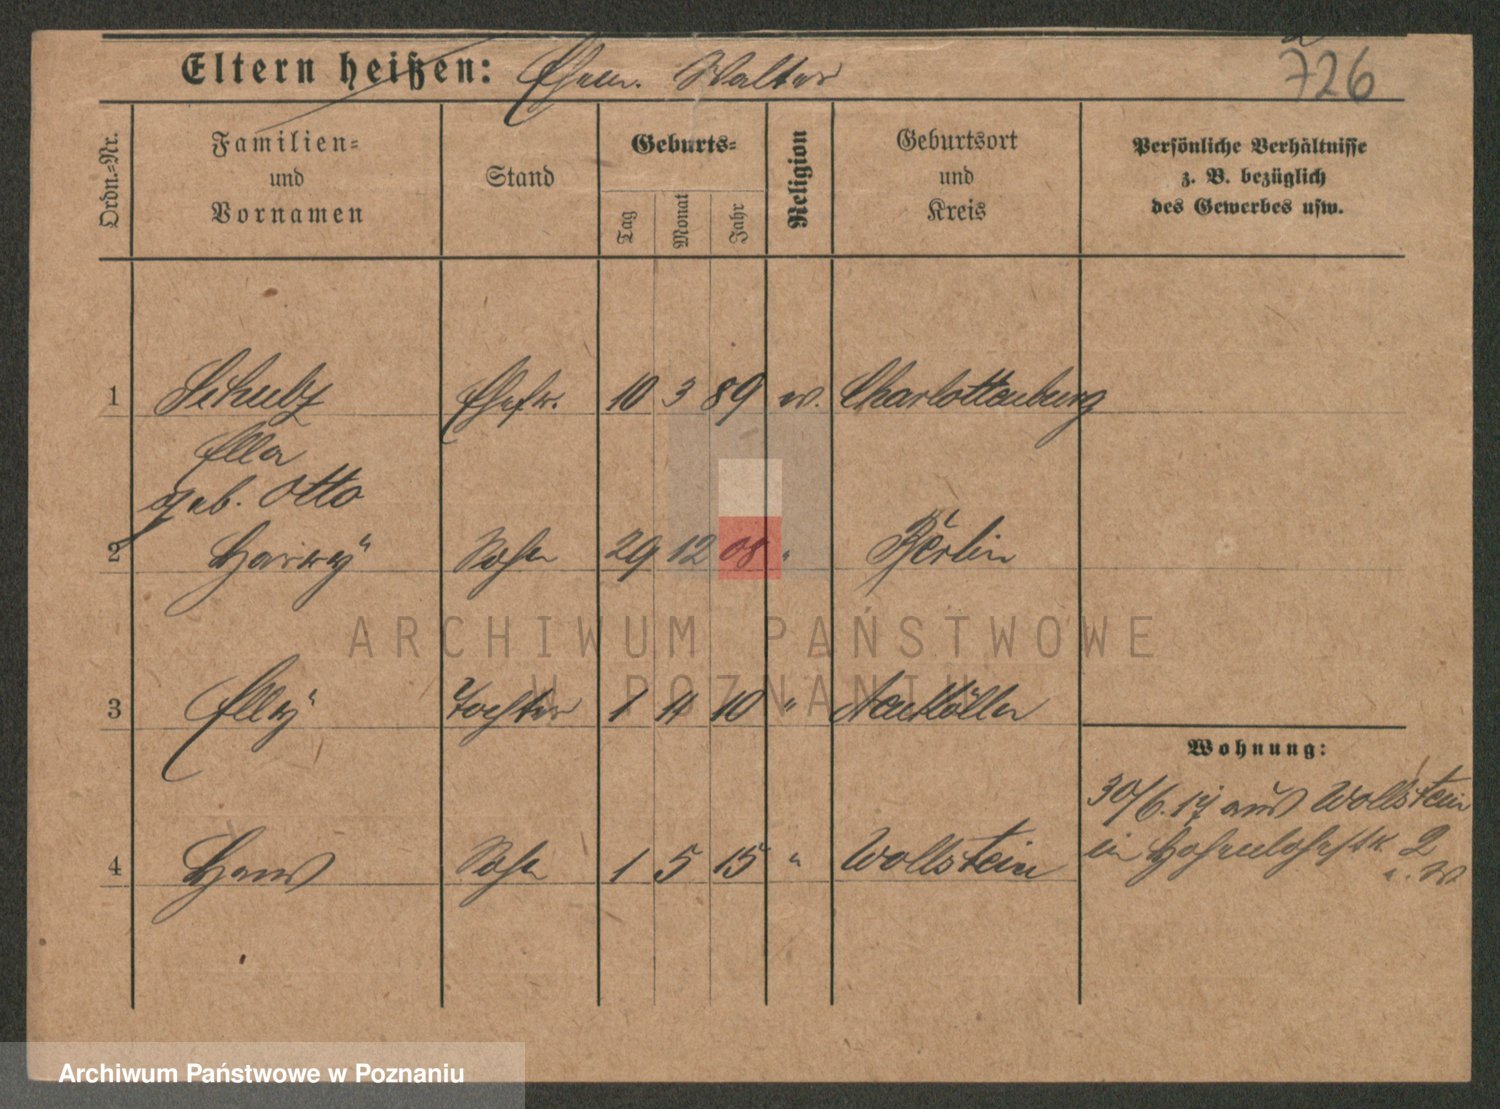 726
Eltern heißen: Ehem. Walter
Ordn.-Nr.
Familien-
und
Vornamen
Stand
Geburts-
Tag
Monat
Jahr
Religion
Geburtsort
und
Kreis
Persönliche Verhältnisse
z. B. bezüglich
des Gewerbes usw.
1 Schulz Ehefr. 10 3 89 ev. Charlottenburg
Ella
geb. Otto
2 Harry " Sohn 29 12 08 " Berlin
ARCHIWUM PAŃSTWOWE
W POZNANIU
3 Elly " Tochter 1 11 10 " Neukölln
4 Hans Sohn 1 5 15 " Wollstein
Wohnung:
30/6.17 aus Wollstein
in Hohenlohestr 2
Archiwum Państwowe w Poznaniu